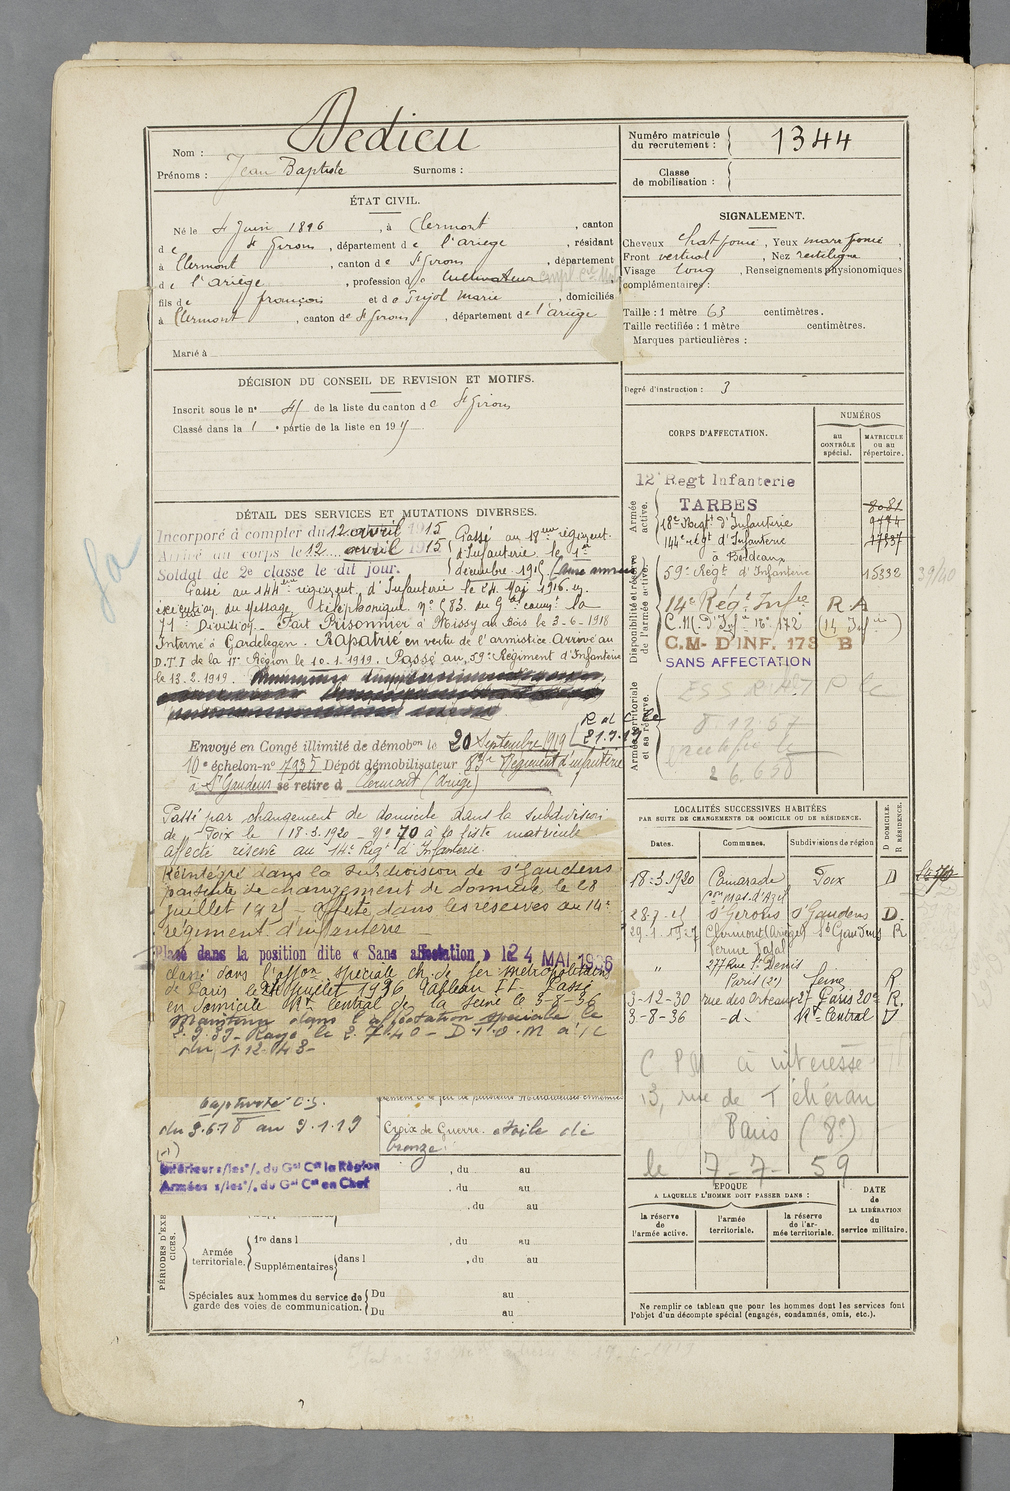 Nom : Dedieu
Prénoms : Jean Baptiste Surnoms :
ÉTAT CIVIL.
Né le 4 Juin 1896, à Clermont, canton
de St Girons, département de l'ariège, résidant
à Clermont, canton de St Girons, département
de l'ariège, profession de Cultivateur
fils de françois et de Pujol Marie, domiciliés
à Clermont, canton de St Girons, département de l'ariège
Marié à
DÉCISION DU CONSEIL DE REVISION ET MOTIFS.
Inscrit sous le n° 41 de la liste du canton de St Girons
Classé dans la 1e partie de la liste en 19
DÉTAIL DES SERVICES ET MUTATIONS DIVERSES.
Incorporé à compter du 12 avril 1915
Arrivé au corps le 12 avril 1915
Soldat de 2e classe le dit jour.
Passé au 18eme régiment
d'Infanterie le 1er
décembre 1915
Passé au 144eme régiment d'Infanterie le 24 Mai 1916 en
exécution du Message téléphonique n° 583 du Gal comt la
Division - Fait Prisonnier à Noissy au Bois le 3-6-1918
Interné à Gardelegen. Rapatrié en vertu de l'armistice Arrivé au
D.T.I de la 17e Région le 10.1.1919. Passé au 59e Régiment d'Infanterie
le 13.2.1919.
Envoyé en Congé illimité de démobon le 20 Septembre 1919
10e échelon-n° 7935 Dépôt démobilisateur 83e Régiment d'infanterie
à St Gaudens se retire à Clermont (Ariège)
Passé par changement de domicile dans la subdivision
de Foix le 18.3.1920 - N° 70 à la liste matricule
affecté réserve au 14e Regt d'Infanterie.
Réintégré dans la subdivision de St Gaudens
par suite de changement de domicile, le 28
juillet 1921 - affecté dans les réserves au 14e
régiment d'infanterie
Placé dans la position dite « Sans affectation » le 24 MAI 1936
classé dans l'affon spéciale ch. de fer métropolitain
de Paris le juillet 1936 Tableau II. Passé
en domicile Rt Central de la Seine le 3-8-36
Maintenu dans l'affectation spéciale le
2.9.39 - Rayé le 2.7.40 - D.T.O.M à/c
du 1.12.43-
Captivité C.S.
du 3.6.18 au 9.1.19
Intérieur s/les % du Gal Ct la Région
Armées s/les % du Gal Ct en Chef
Croix de Guerre. étoile de
bronze.
, du au
, du au
, du au
PÉRIODES D'EXERCICES.
Armée territoriale.
1re dans l , du au
Supplémentaires dans l , du au
Spéciales aux hommes du service de garde des voies de communication.
Du au
Du au
Numéro matricule du recrutement : 1344
Classe de mobilisation :
SIGNALEMENT.
Cheveux chat foncé, Yeux mar foncé,
Front vertical, Nez rectiligne,
Visage long, Renseignements physionomiques
complémentaires :
Taille : 1 mètre 63 centimètres.
Taille rectifiée : 1 mètre centimètres.
Marques particulières :
Degré d'instruction : 3
CORPS D'AFFECTATION.
NUMÉROS
au CONTRÔLE spécial.
MATRICULE OU AU répertoire.
Armée active.
12e Regt Infanterie
TARBES 8081
18e Regt d'Infanterie 9774
144e regt d'Infanterie 17537
à Bordeaux
Disponibilité et réserve de l'armée active.
59e Regt d'Infanterie 15332 39/40
14e Regt Infie R A
C.M. d'Infie n° 172 (14 Infie)
C.M- D'INF. 173 B
SANS AFFECTATION
Armée territoriale et sa réserve.
8.12.57
LOCALITÉS SUCCESSIVES HABITÉES
PAR SUITE DE CHANGEMENTS DE DOMICILE OU DE RÉSIDENCE.
Dates. Communes. Subdivisions de région D DOMICILE. R RÉSIDENCE.
18.3.1920 Camarade Foix D
con Mas-d'Azil
28.7.21 St Girons St Gaudens D.
29.1.1927 Clermont (Ariège) St Gaudens R
" 277 Rue St Denis
Paris (2e) Seine R
3-12-30 rue des Orteaux 27 Paris 20e R.
3-8-36 -d- Rt Central D
C P M à intéressé
13, rue de Téhéran
Paris (8e)
le 7-7-59
ÉPOQUE
A LAQUELLE L'HOMME DOIT PASSER DANS :
la réserve de l'armée active.
l'armée territoriale.
la réserve de l'armée territoriale.
DATE de LA LIBÉRATION du service militaire.
Ne remplir ce tableau que pour les hommes dont les services font
l'objet d'un décompte spécial (engagés, condamnés, omis, etc.).